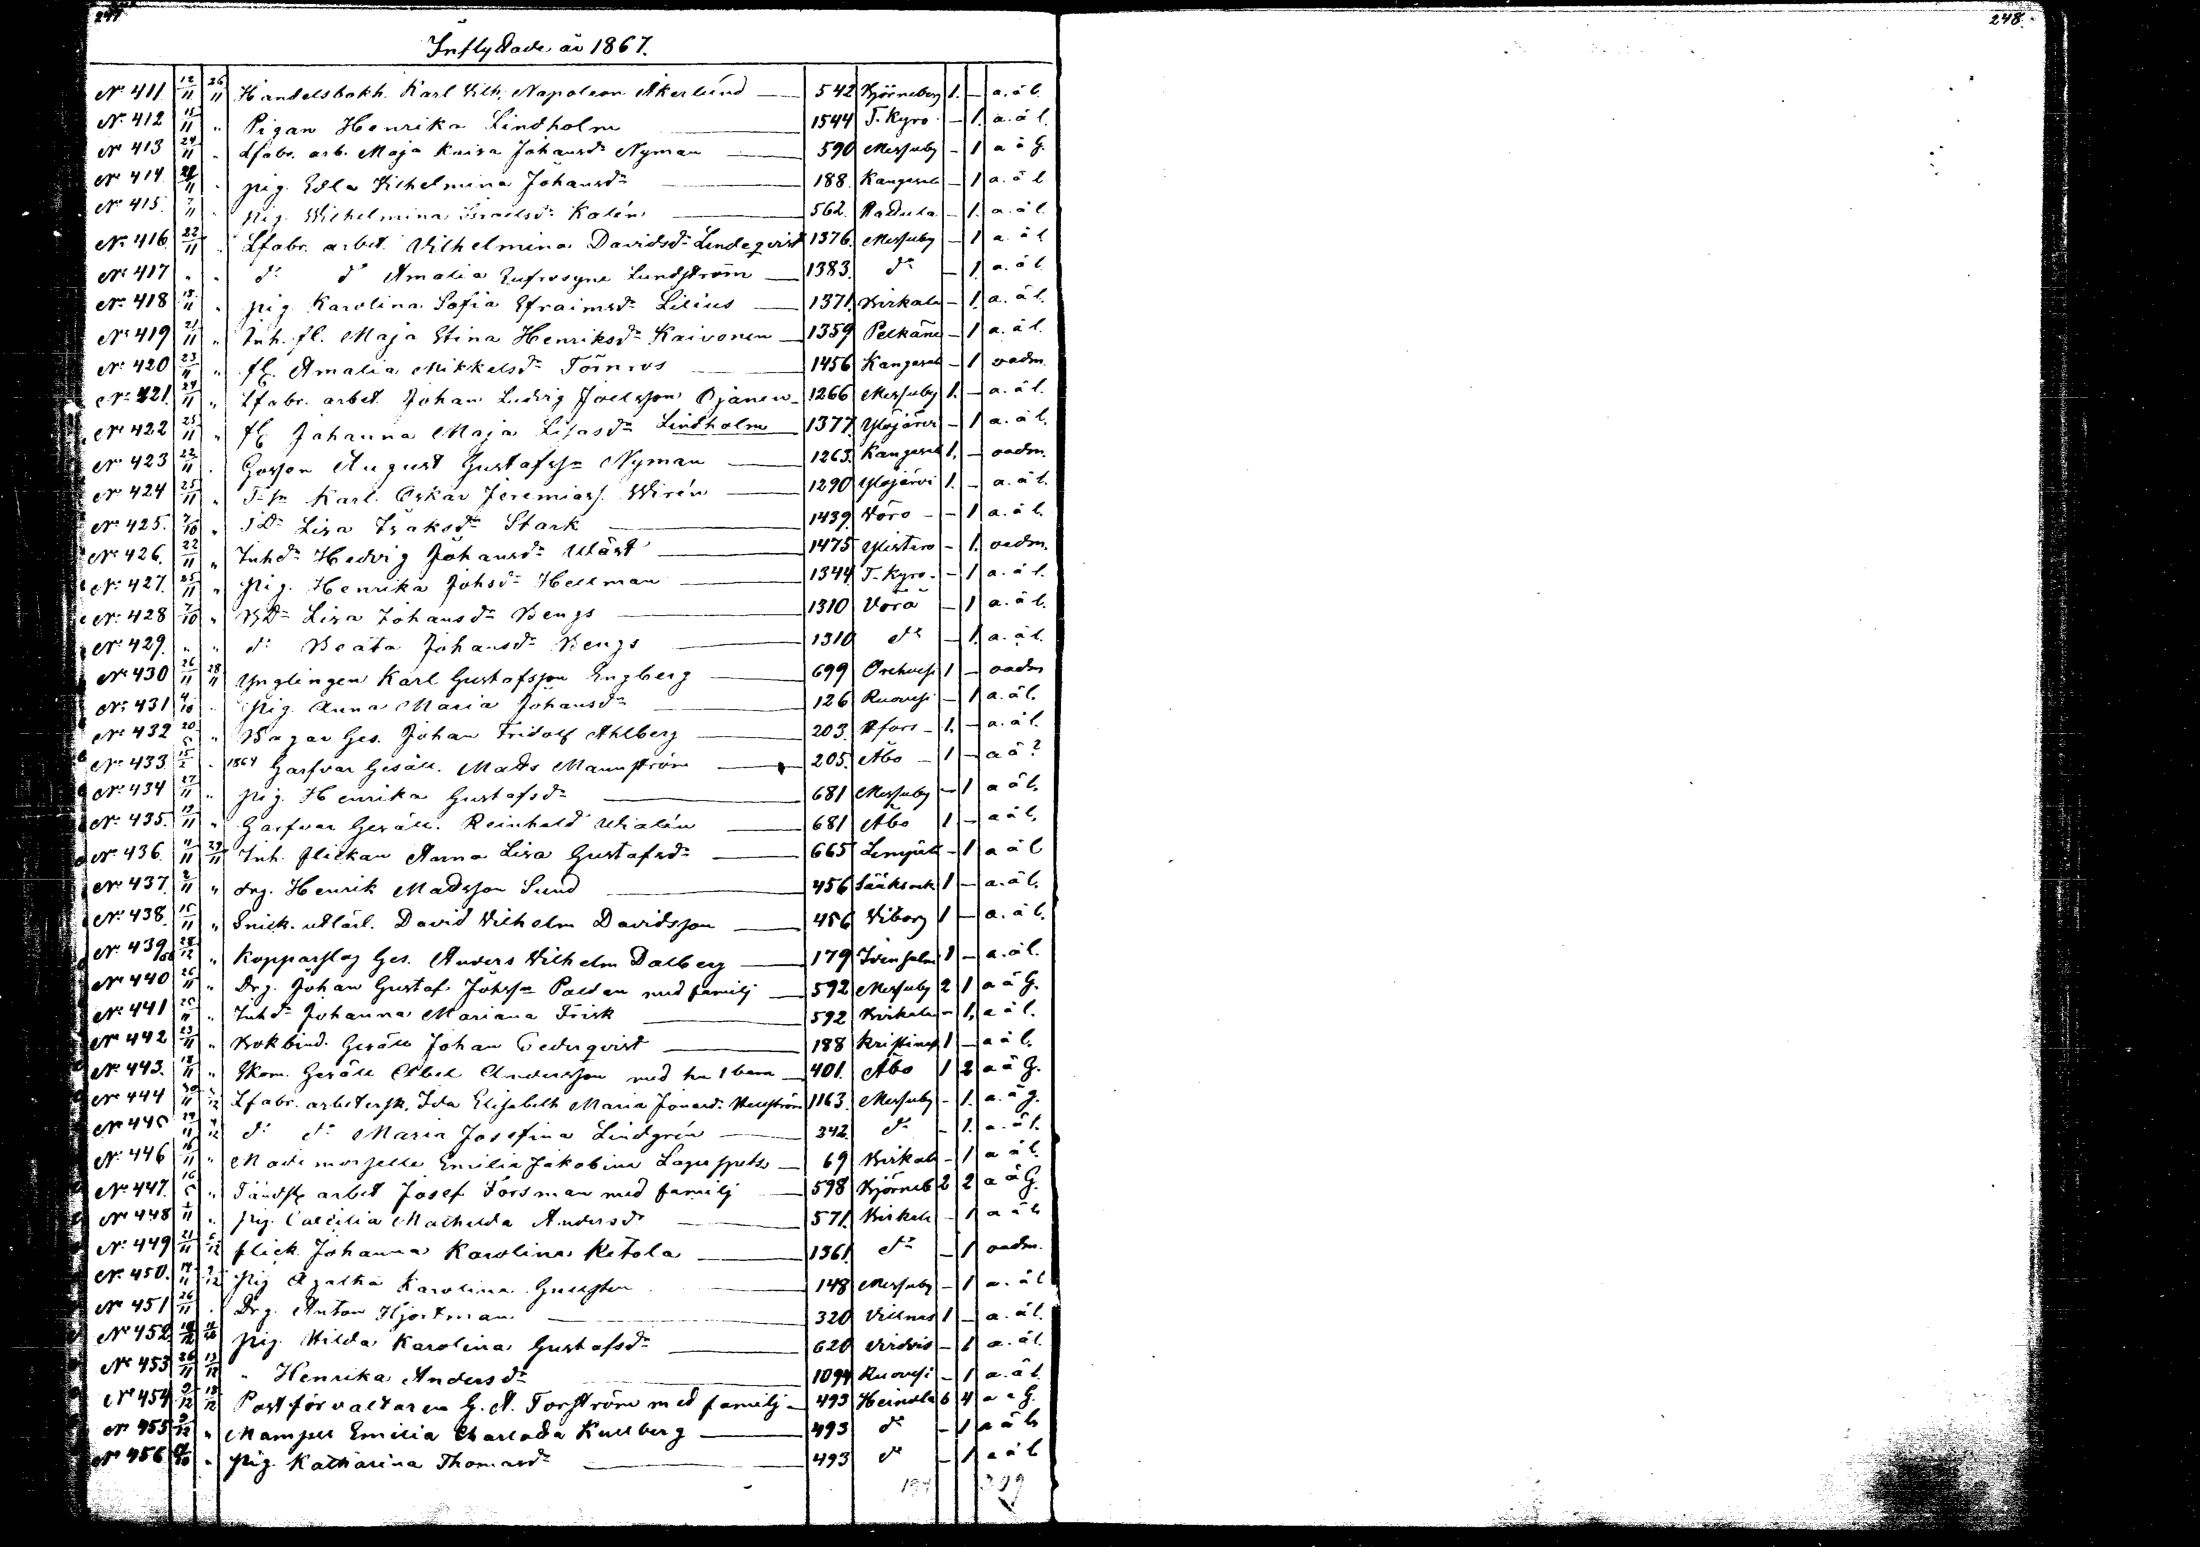 247
248.
Inflyttade år 1867.
No 411 12/11 26/11 Handelsbokh. Karl Vilh. Napoleon Åkerlund — 542 Björneborg 1. — a. ä l.
No 412 15/11 " Pigan Henrika Lindholm 1544 T. Kyro — 1. a. ä l.
No 413 24/11 " Lfabr. arb. Maja Kaisa Johansdr Nyman — 590 Messuby — 1 a ä G.
No 414 " pig. Edla Vilhelmina Johansdr — 188. Kangasala — 1 a. ä l
No 415. 7/11 " pig. Wilhelmina Israelsdr Kalén — 562. — 1. a. ä l.
No 416 22/11 " Lfabr. arbet. Vilhelmina Davidsdr Lindeqvist 1376. Messuby — 1 a. ä l
No 417 " " do do Amalia Eufrosyne Lundström — 1383. do — 1. a. ä l.
No 418 18/11 " pig. Karolina Sofia Efraimsdr Lilius — 1371. Birkala — 1. a. ä l.
No 419 21/11 " Inh. fl. Maja Stina Henriksdr Kaivonen — 1359 Pelkäne — 1 a. ä l.
No 420 23/11 " fl. Amalia Mikkelsdr Törnros — 1456 Kangasala — 1 oadm.
No 421. 24/11 " Lfabr. arbet. Johan Ludvig Joelsson Ojanen — 1266 Messuby 1. — a. ä l.
No 422 25/11 " fl. Johanna Maja Lisasdr Lindholm — 1377. Ylöjärvi — 1 a. ä l.
No 423 22/11 " Gosson August Gustafsson Nyman — 1263. Kangasala 1. — oadm.
No 424 25/11 " Karl Oskar Jeremiass. Wirén — 1290 Ylöjärvi 1. — a. ä l.
No 425. 7/10 " Lisa Isaksdr Stark — 1439. Vörå — 1 a. ä l.
No 426. 22/11 " Inhdr Hedvig Johansdr — 1475 Ylistaro — 1. oadm.
No 427. 25/11 " pig. Henrika Johsdr Hellman — 1344 T. Kyro. — 1 a. ä l.
No 428 7/10 " BDr Lisa Johansdr Bengs — 1310 Vörå — 1 a. ä l.
No 429. " " do Beata Johansdr Bengs — 1310 do — 1. a. ä l.
No 430 26/11 28/11 Ynglingen Karl Gustafsson Engberg — 699 Orehvesi 1 — oadm
No 431 4/10 " pig. Anna Maria Johansdr — 126 Ruovesi — 1 a. ä l.
No 432 20/5 " Bagar Ges. Johan Fridolf Ahlberg — 203. Hfors — 1. — a. ä l.
No 433. 15/2 " 1864 Garfvar Gesäll. Mats Mannström — 205. Åbo — 1 — a ä ?
No 434 27/11 " pig. Henrika Gustafsdr — 681 Messuby — 1 a ä l.
No 435. 13/11 " Garfvar Gesäll. Reinhold Wialén — 681 Åbo 1 — a ä l.
No 436. 4/11 29/11 Inh. flickan Anna Lisa Gustafsdr — 665 Lempälä — 1 a ä l
No 437. 2/11 " drg. Henrik Matsson Sund — 456 Sääksmäki 1 — a. ä l.
No 438. 15/11 " Snick. utlärl. David Vilhelm Davidsson — 456 Viborg 1 — a. ä l.
No 439 28/12 66 " Kopparslag Ges. Anders Vilhelm Dalberg — 179 Idensalmi 1 — a. ä l.
No 440 26/11 " Drg. Johan Gustaf Johsson Paldan med familj — 592 Messuby 2 1 a ä G.
No 441 20/11 " Inhdr Johanna Mariana Frisk — 592 Birkala — 1. a ä l.
No 442 23/11 " Bokbind. Gesäll Johan Cederqvist — 188 Kristinest 1 — a ä l.
No 443. 18/11 " Skom. Gesäll Abel Andersson med hu 1 barn — 401. Åbo 1 2 a ä G.
No 444 30/11 /12 Lfabr. arbetersk. Ida Elisabeth Maria Jonasdr Hellström 1163. Messuby — 1. a. ä g.
No 445 29/11 4/12 do do Maria Josefina Lindgrén — 342. do — 1. a. ä l.
No 446 16/11 " Mademoiselle Emilia Jakobina Lagerspets — 69 Birkala — 1 a ä l.
No 447. 16/5 " Tändst. arbet Josef Forsman med familj — 598 Björneb 2 2 a ä G.
No 448 /11 " pig. Caecilia Mathilda Andersdr — 571. Birkala — 1 a ä l.
No 449 21/11 6/12 flick. Johanna Karolina Ketola — 1361. do — 1 oadm.
No 450. 14/11 9/12 pig Agatha Karolina Gullsten 148 Messuby — 1 a. ä l
No 451 26/11 " Drg. Anton Hjortman — 320 Villnäs 1 — a. ä l.
No 452 pig. Hilda Karolina Gustafsdr — 620 Virdois — 1 a. ä l.
No 453 26/11 13/12 " Henrika Andersdr — 1094 Ruovesi — 1 a. ä l.
No 454 9/12 18/12 Postförvaltaren G. A. Torström med familj — 493 Heinola 6 4 a ä G.
No 455 9/12 " Mamsell Emilia Charlotta Kullberg — 493 do — 1 a ä l.
No 456 " pig. Katharina Thomasdr — 493 do — 1 a ä l